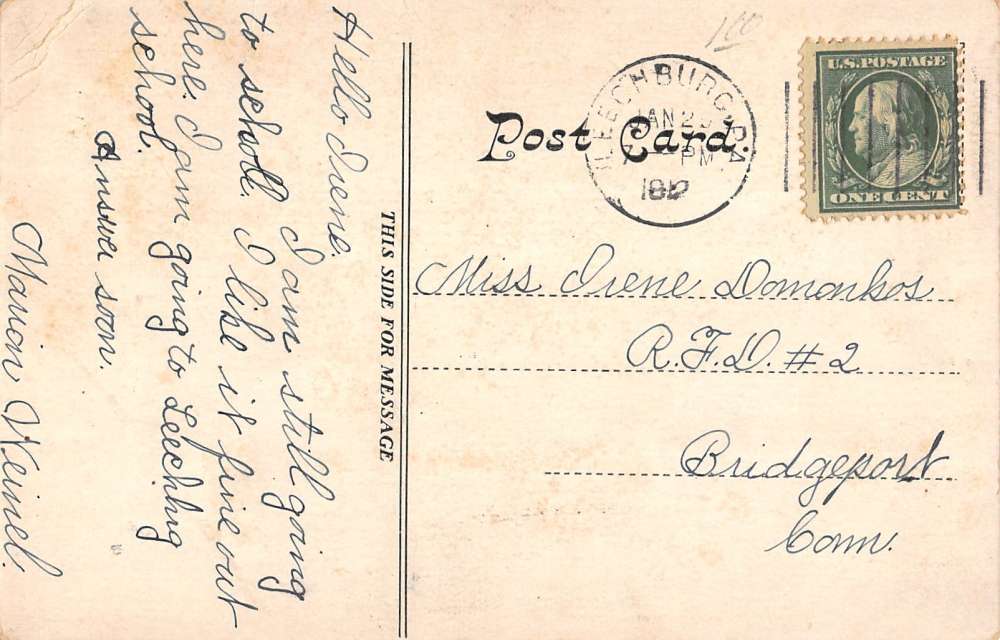 Hello Irene.
I am still going
to school. I like it fine out
here. I am going to Leechbg
school.
Answer soon.
Marion Weinel.
THIS SIDE FOR MESSAGE
100
Post Card.
LEECHBURG, PA.
JAN 2
PM
U.S. POSTAGE
ONE CENT
Miss Irene Domonkos.
R.F.D. # 2
Bridgeport
Conn.